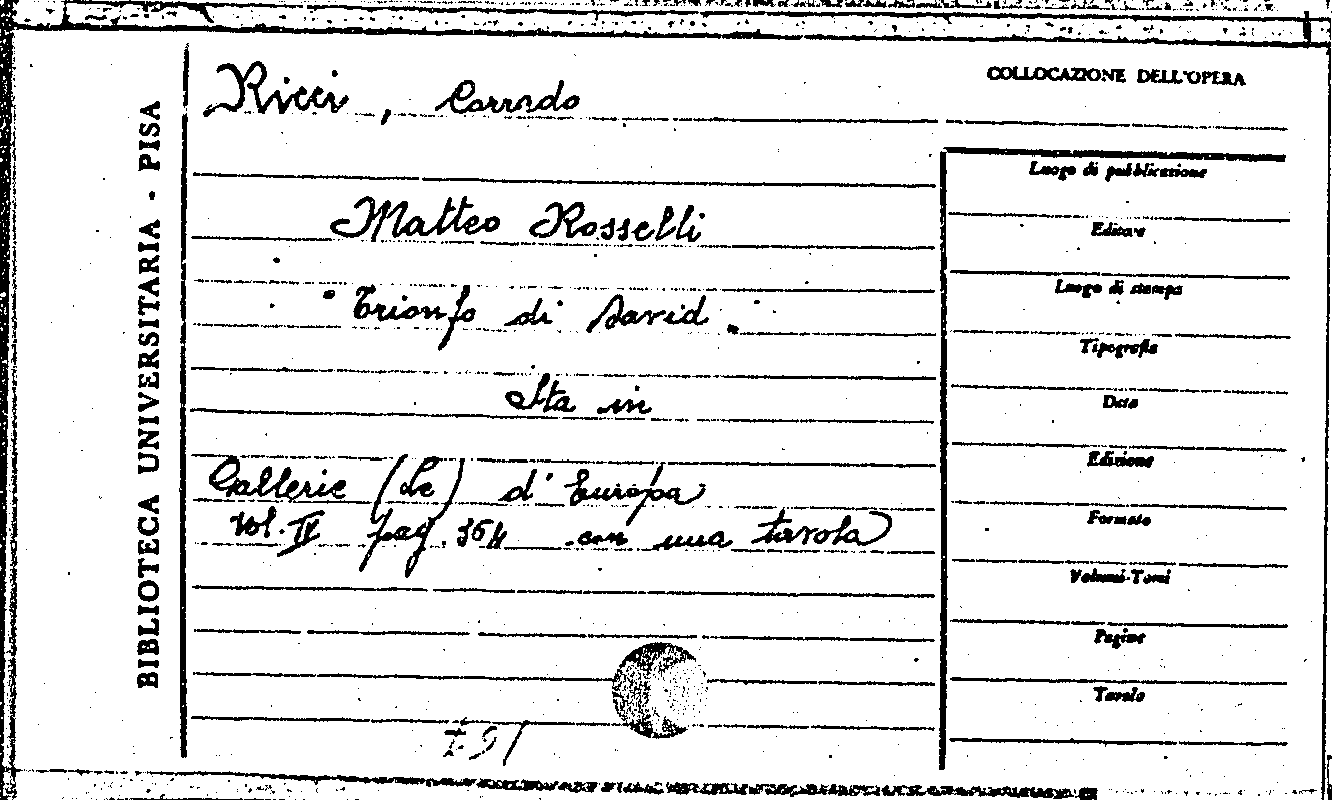 COLLOCAZIONE DELL'OPERA
Ricci, Corrado
Matteo Rosselli
"Trionfo di David"
Sta in
Gallerie (Le) d'Europa
Vol. IV pag. 364 con una tavola
BIBLIOTECA UNIVERSITARIA - PISA
Luogo di pubblicazione
Editore
Luogo di stampa
Tipografia
Data
Edizione
Formato
Volumi-Tomi
Pagine
Tavole